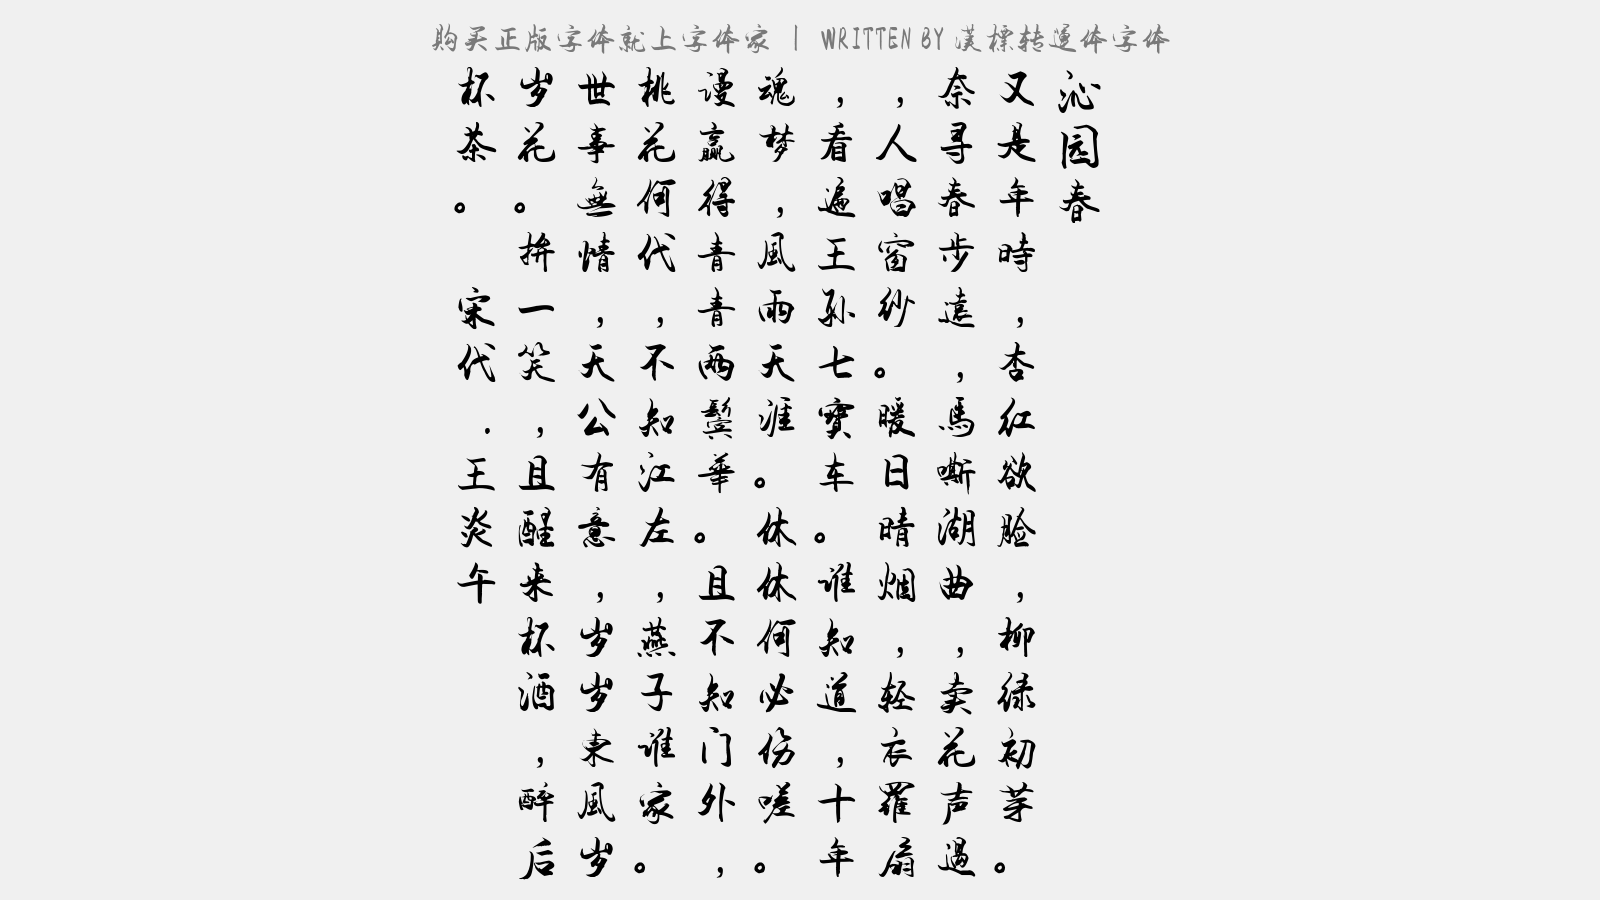 购买正版字体就上字体家 | WRITTEN BY 汉标转运体字体
沁园春
又是年時，杏红欲脸，柳绿初芽。
奈寻春步遠，馬嘶湖曲，卖花声過
，人唱窗纱。暖日晴烟，轻衣羅扇
，看遍王孙七寶车。谁知道，十年
魂梦，風雨天涯。休休何必伤嗟。
谩赢得青青兩鬓華。且不知门外，
桃花何代，不知江左，燕子谁家。
世事無情，天公有意，岁岁東風岁
岁花。拚一笑，且醒来杯酒，醉后
杯茶。 宋代.王炎午